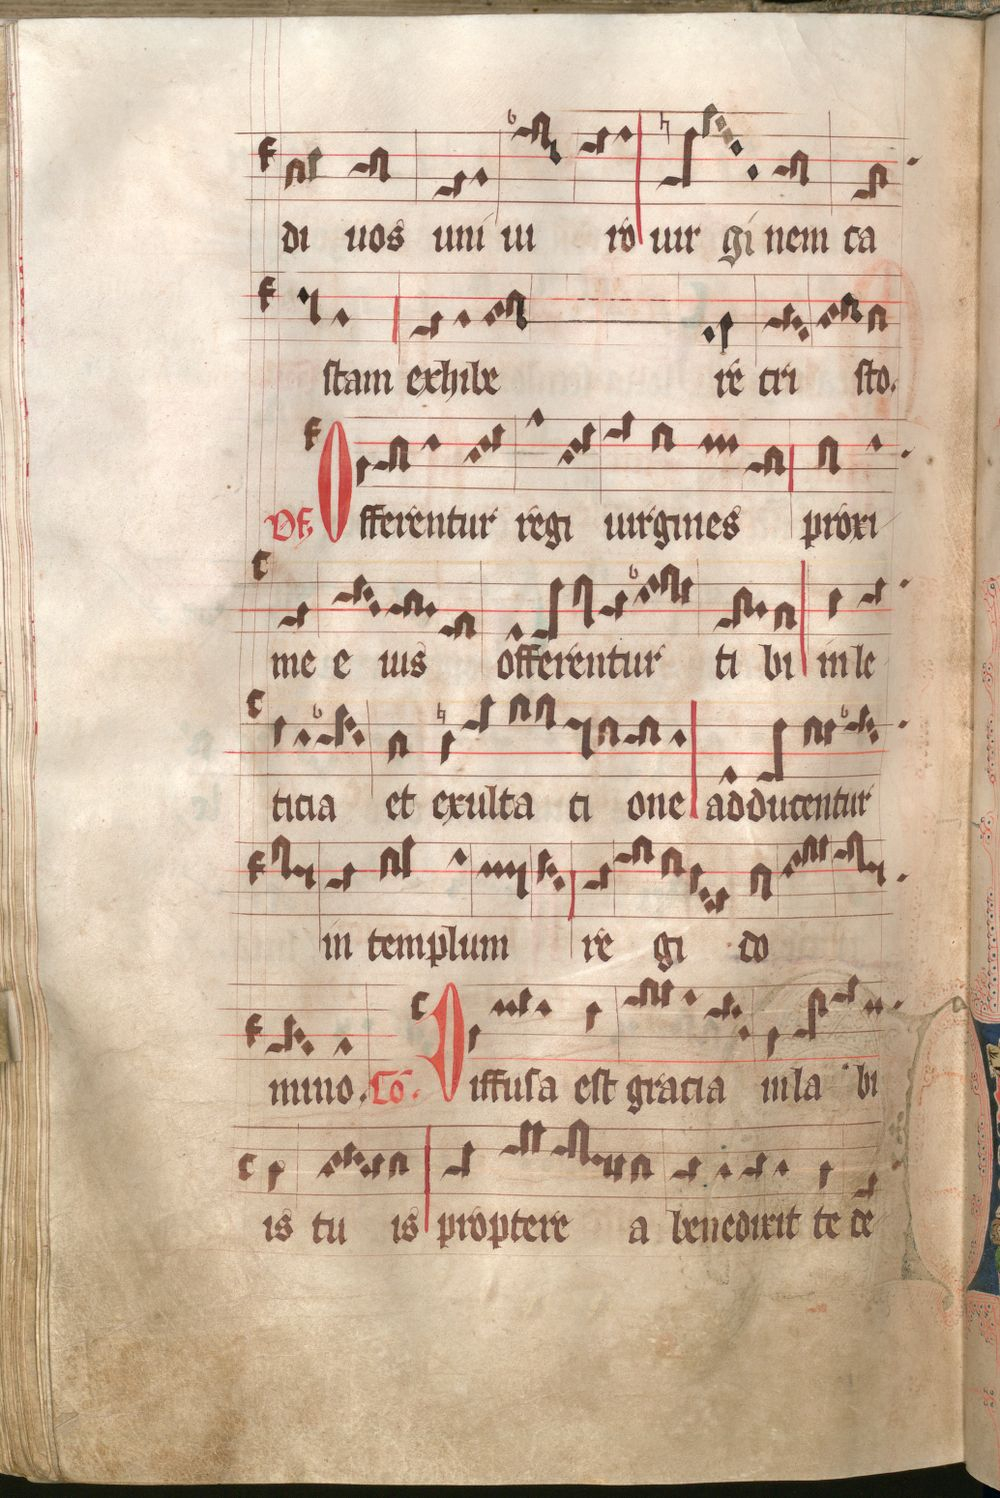 di uos uni ui ro uir gi nem ca
stam exhibe re cri sto.
Of. Offerentur regi uirgines proxi
me e ius offerentur ti bi in le
ticia et exulta ti one adducentur
in templum re gi do
mino. Co. Diffusa est gracia in la bi
is tu is proptere a benedixit te de